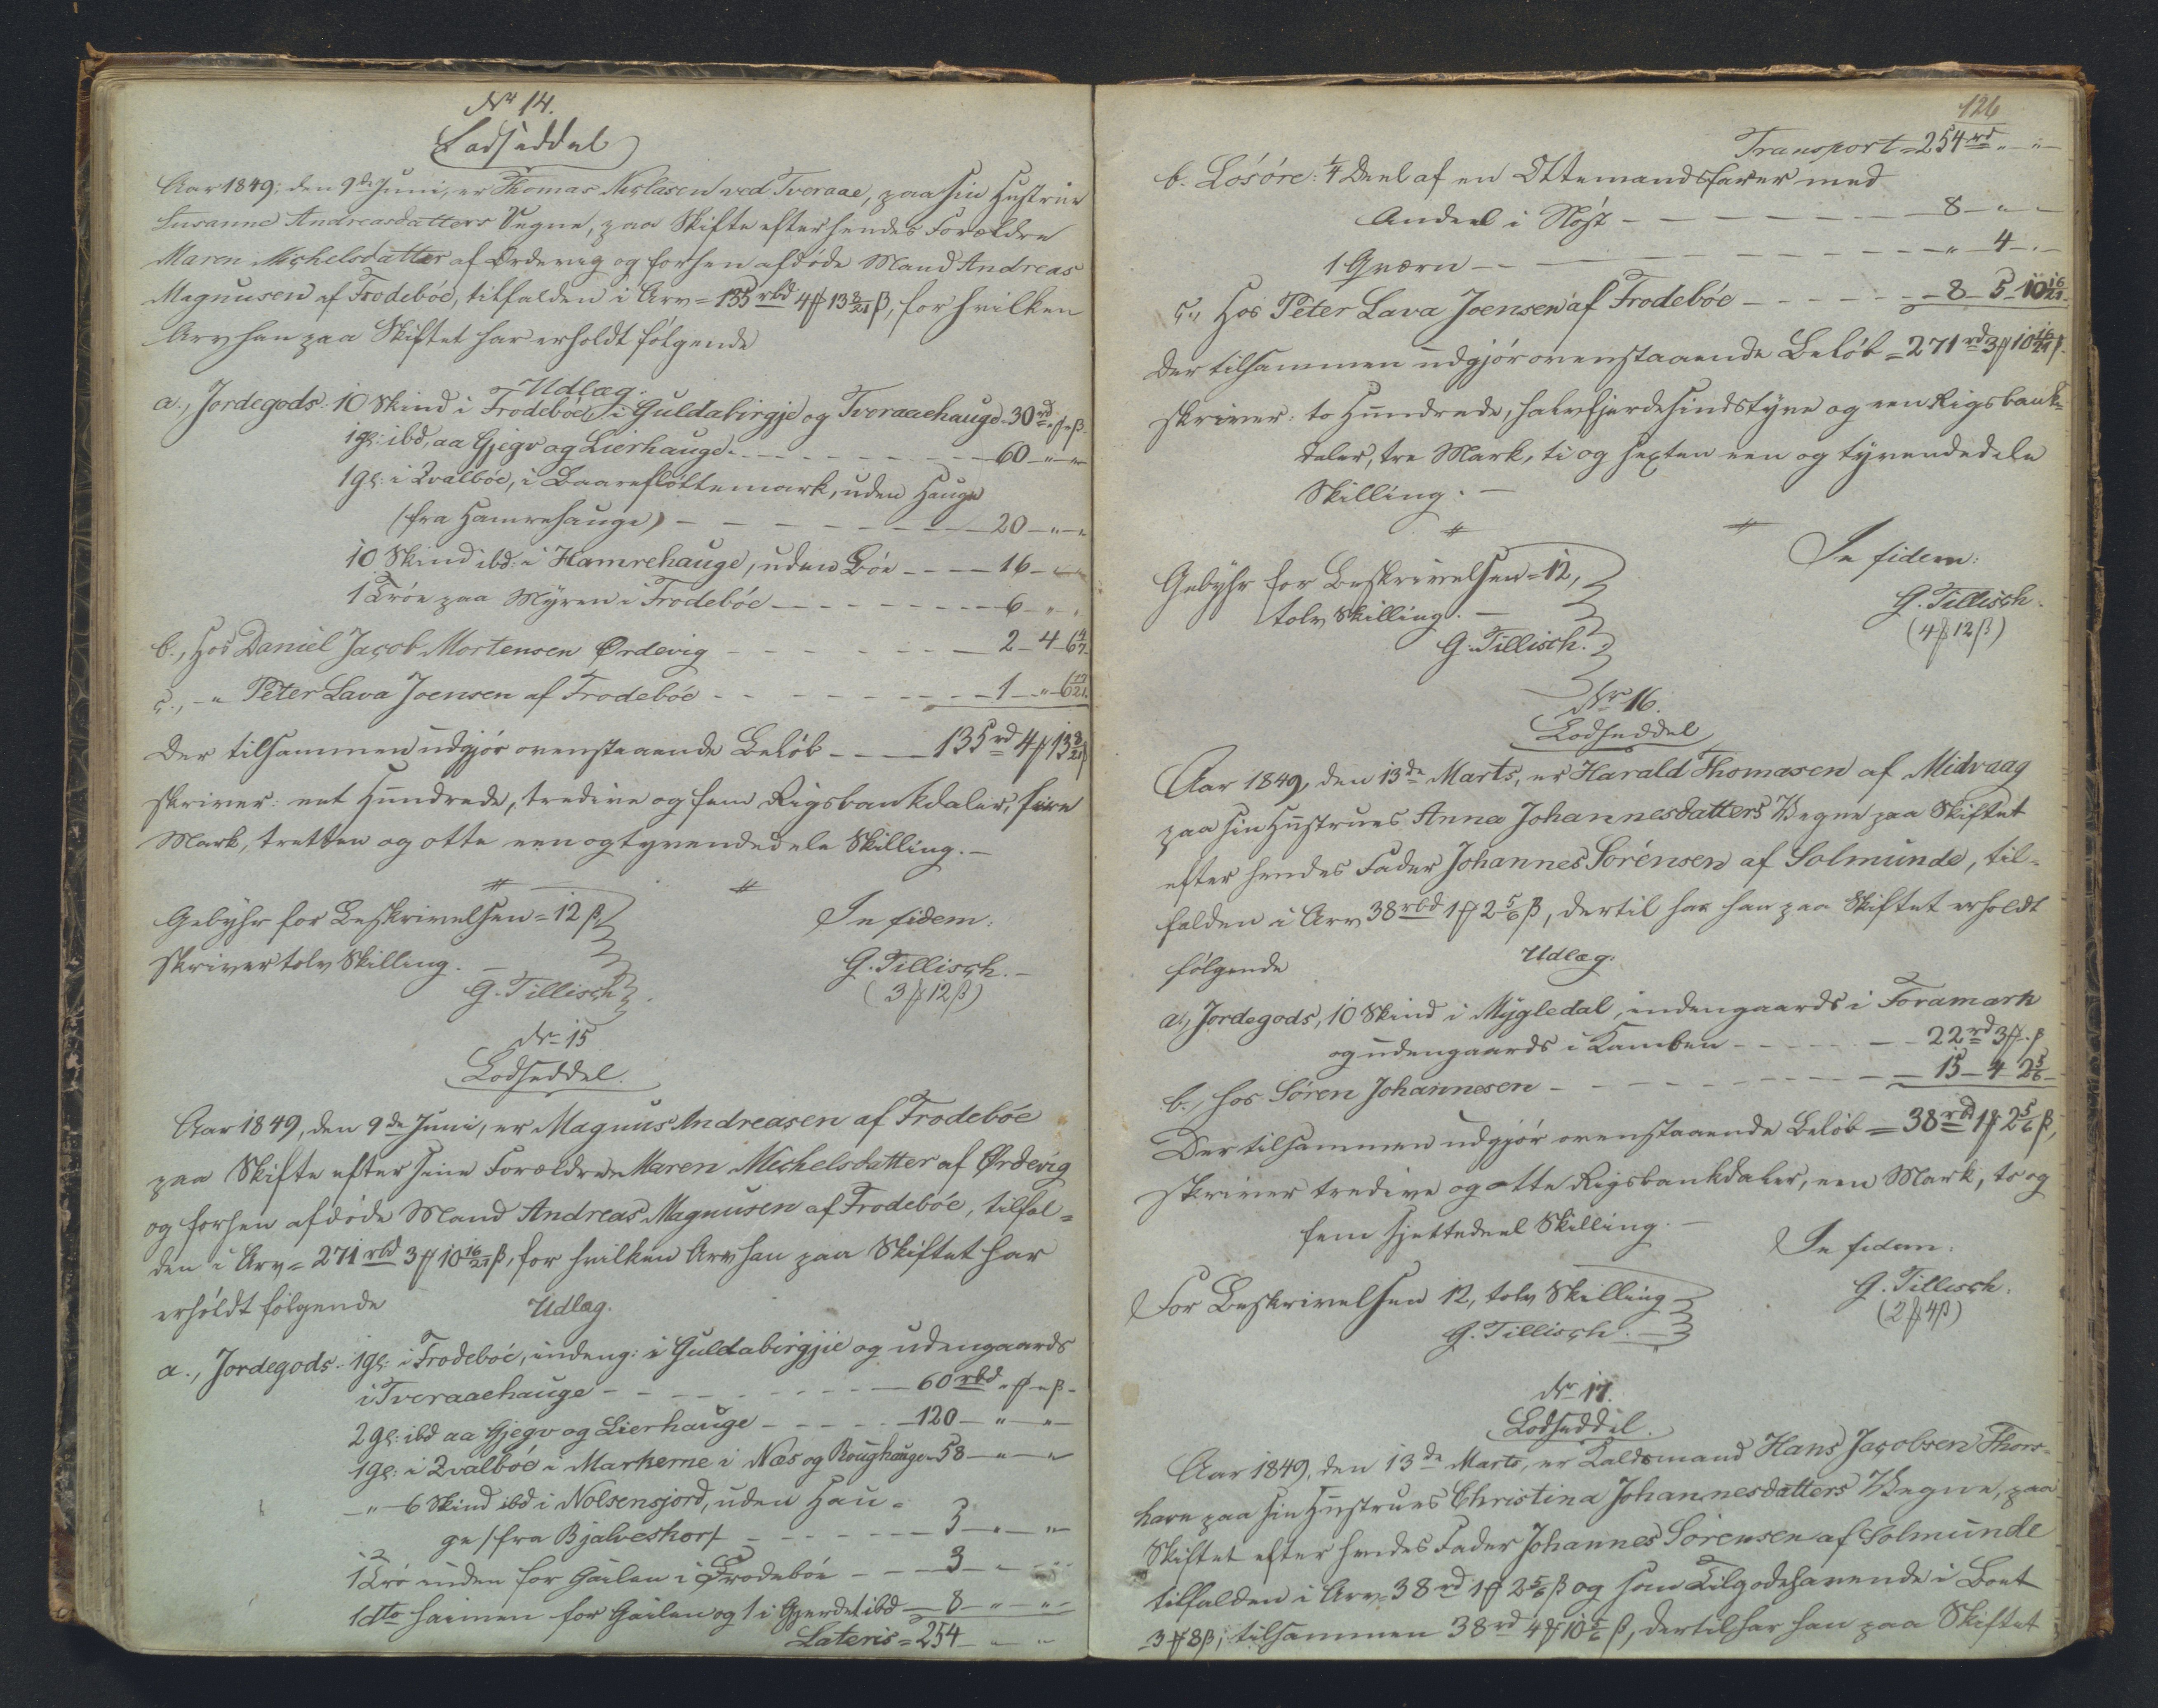 Nr 14.
Lodseddel
Aar 1849, den 9de Juni, er Thomas Niclasen ved Tveraae, paa sin Hustrue
Susanne Andreasdatters Vegne, paa Skifte efter hendes Forældre
Maren Michelsdatter af Ørdevig og forhen afdøde Mand Andreas
Magnusen af Frodebøe, tilfalden i Arv = 135 rbd 4 ₰ 13 8/21 β, for hvilken
Arv han paa Skiftet har erholdt følgende
Udlæg.
a., Jordegods: 10 Skind i Frodeboe, i Guldabirgje og Tveraaehauge - 30 rd " ₰ " β.
1 gl: ibd, aa Gjegv og Lierhauge - - - 60 - " - "
1 gl: i Qvalbøe, i Baarefløttemark, uden Hauge
(fra Hamrehauge) - - - 20 - " - "
10 Skind ibd: i Hamrehauge, uden Bøe - - - 16 - " - "
1 Trøe paa Myren i Frodebóe - - - 6 - " - "
b., Hos Daniel Jacob Mortensen Ørdevig - - - 2 - 4 - 6 4/7
c., - " Peter Lava Joensen af Frodebóe - - - 1 - " - 6 17/21
Der tilsammen udgjør ovenstaaende Beløb - - - 135 rd 4 ₰ 13 8/21 β
skriver: eet Hundrede, tredive og fem Rigsbankdaler, fire
Mark, tretten og otte een og tyvendedele Skilling. -
Gebyhr for Beskrivelsen = 12 β,
skriver tolv Skilling. -
G. Tillisch
In fidem:
G. Tillisch. -
(3 ₰ 12 β)
Nr 15
Lodseddel.
Aar 1849, den 9de Juni, er Magnus Andreasen af Frodebóe
paa Skifte efter sine Forældre Maren Michelsdatter af Ørdevig
og forhen afdøde Mand Andreas Magnusen af Frodebóe, tilfal=
den i Arv = 271 rbd 3 ₰ 10 16/21 β, for hvilken Arv han paa Skiftet har
erholdt følgende
Udlæg.
a., Jordegods: 1 gl: i Frodebóe, indeng: i Guldabirgjie og udengaards
i Tveraaehauge - - - 60 rbd " ₰ " β -
2 gl: ibd aa Gjegv og Lierhauge - - - 120 - " - "
1 gl: i Qvalbóe i Markerne i Næs og Roughauge - 58 - " - "
- " 6 Skind ibd i Nolsensjord, uden Hau=
ge /: fra Bjalveshor/ - - - 3 - " - "
1 Trø inden for Gailen i Frodebóe - - - 3 - " - "
1 dto haimen for Gailen og 1 i Gjerdet ibd - 8 - " - "
Lateris = 254 - " - "
126
Transport = 254 rd " - " -
b. Løsøre: 1/4 Deel af en Ottemandsfarer med
Andeel i Nøst - - - 8 - " -
1 Qværn - - - " - 4 - " -
c., Hos Peter Lava Joensen af Frodebóe - - - 8 - 5 - 10 16/21
der tilsammen udgjør ovenstaaende Beløb = 271 rd 3 ₰ 10 16/21 β.
skriver: to Hundrede, halvfjerdesindstyve og een Rigsbank=
daler, tre Mark, ti og sexten een og tyvendedele
Skilling. -
Gebyhr for Beskrivelsen = 12,
tolv Skilling. -
G. Tillisch.
In fidem:
G. Tillisch.
(4 ₰ 12 β)
Nr 16.
Lodseddel
Aar 1849, den 13de Marts, er Harald Thomasen af Midvaag
paa sin Hustrues Anna Johannesdatters Vegne paa Skiftet
efter hendes Fader Johannes Sørensen af Solmunde, til=
falden i Arv 38 rbd 1 ₰ 2 5/6 β, dertil har han paa Skiftet erholdt
følgende
Udlæg.
a., Jordegods, 10 Skind i Mygledal, indengaards i Foramark
og udengaards i Kamben - - - 22 rd 3 ₰ " β
b., hos Søren Johannesen - - - 15 - 4 2 5/6
Der tilsammen udgjør ovenstaaende Beløb = 38 rd 1 ₰ 2 5/6 β,
skriver tredive og otte Rigsbankdaler, een Mark, to og
fem sjettedeel Skilling. -
For Beskrivelsen 12, tolv Skilling
G. Tillisch. -
In fidem:
G. Tillisch.
(2 ₰ 4 β)
Nr 17.
Lodseddel.
Aar 1849, den 13de Marts, er Kaldsmand Hans Jacobsen Thors=
havn paa sin Hustrues Christina Johannesdatters Vegne, paa
Skiftet efter hendes Fader Johannes Sørensen af Solmunde
tilfalden i Arv 38 rd 1 ₰ 2 5/6 β og som Tilgodehavende i Boet
3 ₰ 8 β, tilsammen 38 rd 4 ₰ 10 5/6 β, dertil har han paa Skiftet